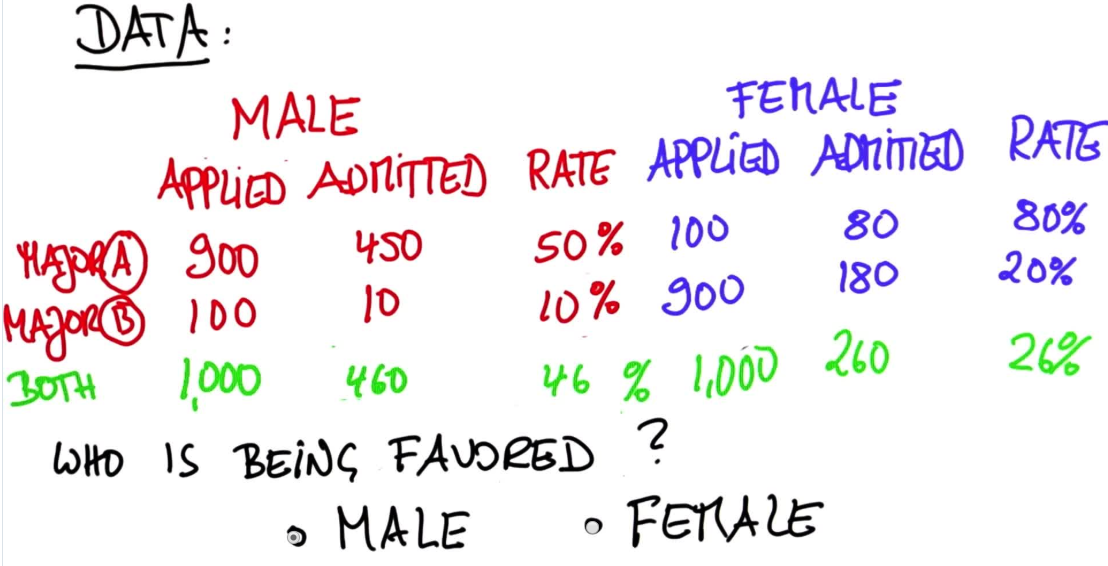 DATA:
MALE FEMALE
APPLIED ADMITTED RATE APPLIED ADMITTED RATE
MAJOR A 900 450 50% 100 80 80%
MAJOR B 100 10 10% 900 180 20%
BOTH 1,000 460 46 % 1,000 260 26%
WHO IS BEING FAVORED ?
MALE FEMALE